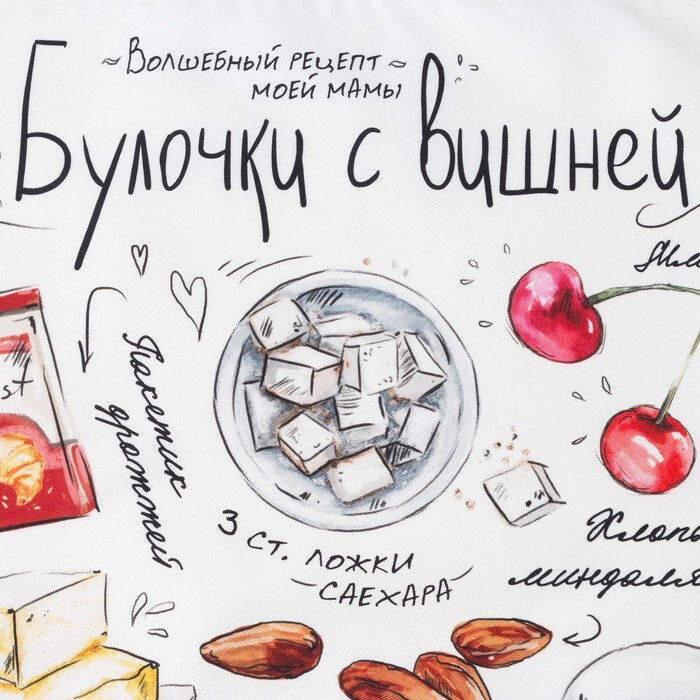 ~ Волшебный рецепт ~
моей мамы
Булочки с вишней
Пакетик
дрожжей
st
3 ст. ложки
саехара
Хлопь
миндаля